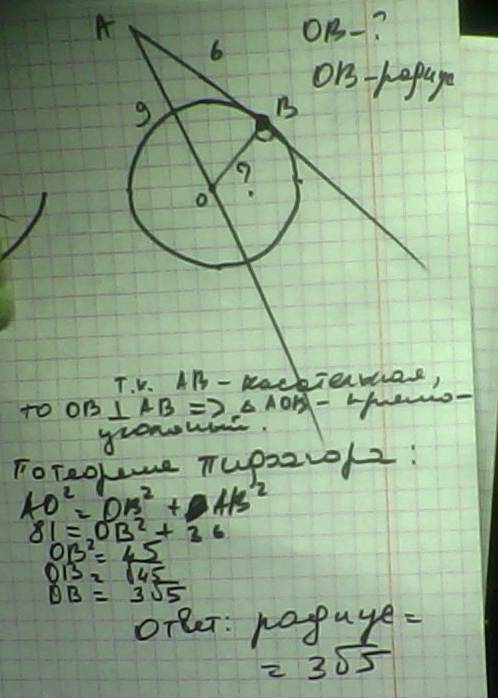 A
6
OB-?
OB-радиус
9
B
O
?
т.к. AB - касательная,
то OB ⊥ AB => △ AOB - прямо-
угольный.
По теореме Пифагора:
AO² = OB² + AB²
81 = OB² + 36
OB² = 45
OB = √45
OB = 3√5
Ответ: радиус =
= 3√5